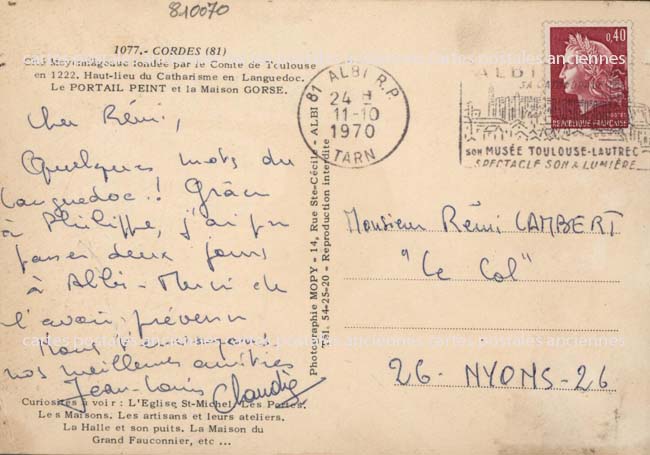 810070
1077.- CORDES (81)
Cité Moyennâgeuse fondée par le Comte de Toulouse
en 1222. Haut-lieu du Catharisme en Languedoc.
Le PORTAIL PEINT et la Maison GORSE.
Cher Rémi,
Quelques mots du
Languedoc! Grâce
à Philippe, j'ai pu
passer deux jours
à Albi - Merci de
l'avoir prévenu
nos meilleures amitiés
Jean-Louis Claudie
Curiosités à voir : L'Eglise St-Michel, Les Portes,
Les Maisons. Les artisans et leurs ateliers.
La Halle et son puits. La Maison du
Grand Fauconnier, etc ...
Photographie MOPY - 14, Rue Ste-Cécile - ALBI
Tél. 54-25-20 - Reproduction interdite
81 ALBI R.P.
24 H
11-10
1970
TARN
0,40
REPUBLIQUE FRANÇAISE
ALBI
SA CATHEDRALE
SON MUSÉE TOULOUSE-LAUTREC
SPECTACLE SON & LUMIÈRE
Monsieur Rémi LAMBERT
"Le Col"
26 - NYONS - 26
cartes postales anciennes cartes postales anciennes cartes postales anciennes
cartes postales anciennes cartes postales anciennes cartes postales anciennes